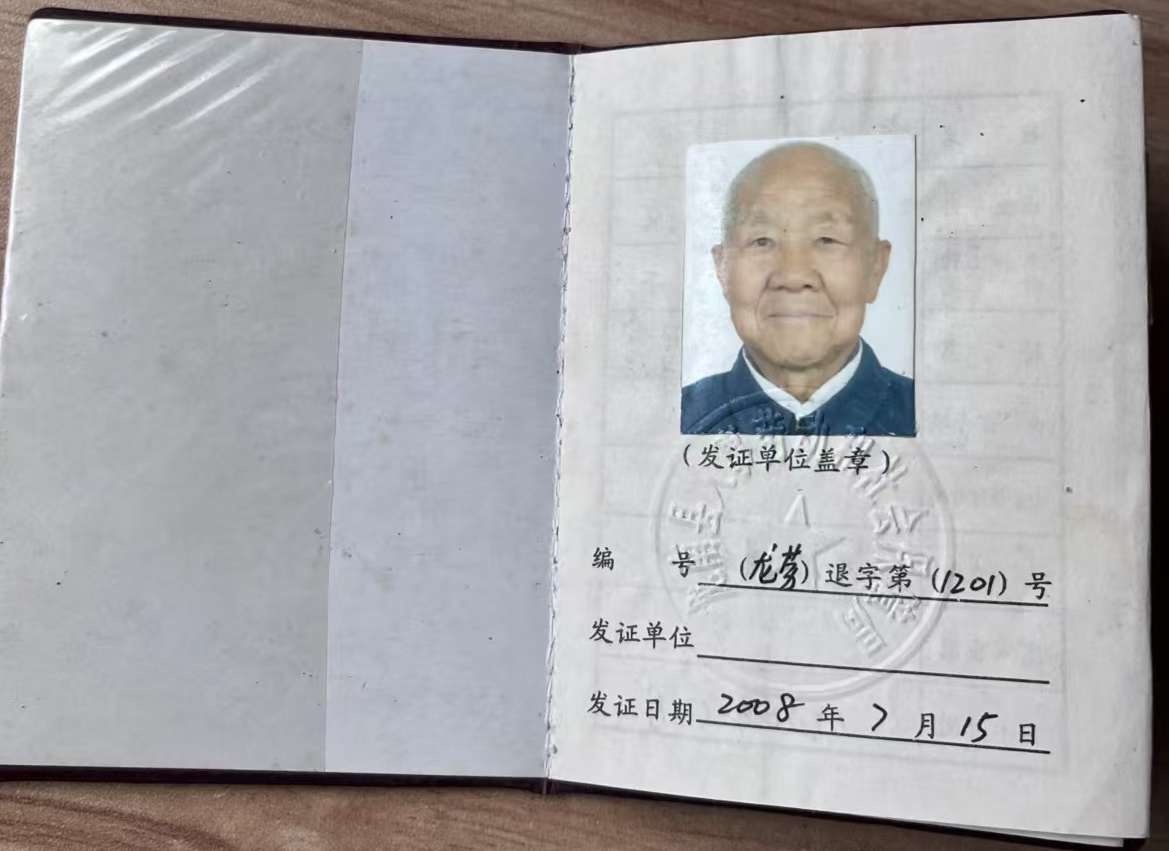 （发证单位盖章）
编 号 （龙劳）退字第（1201）号
发证单位
发证日期 2008 年 7 月 15 日